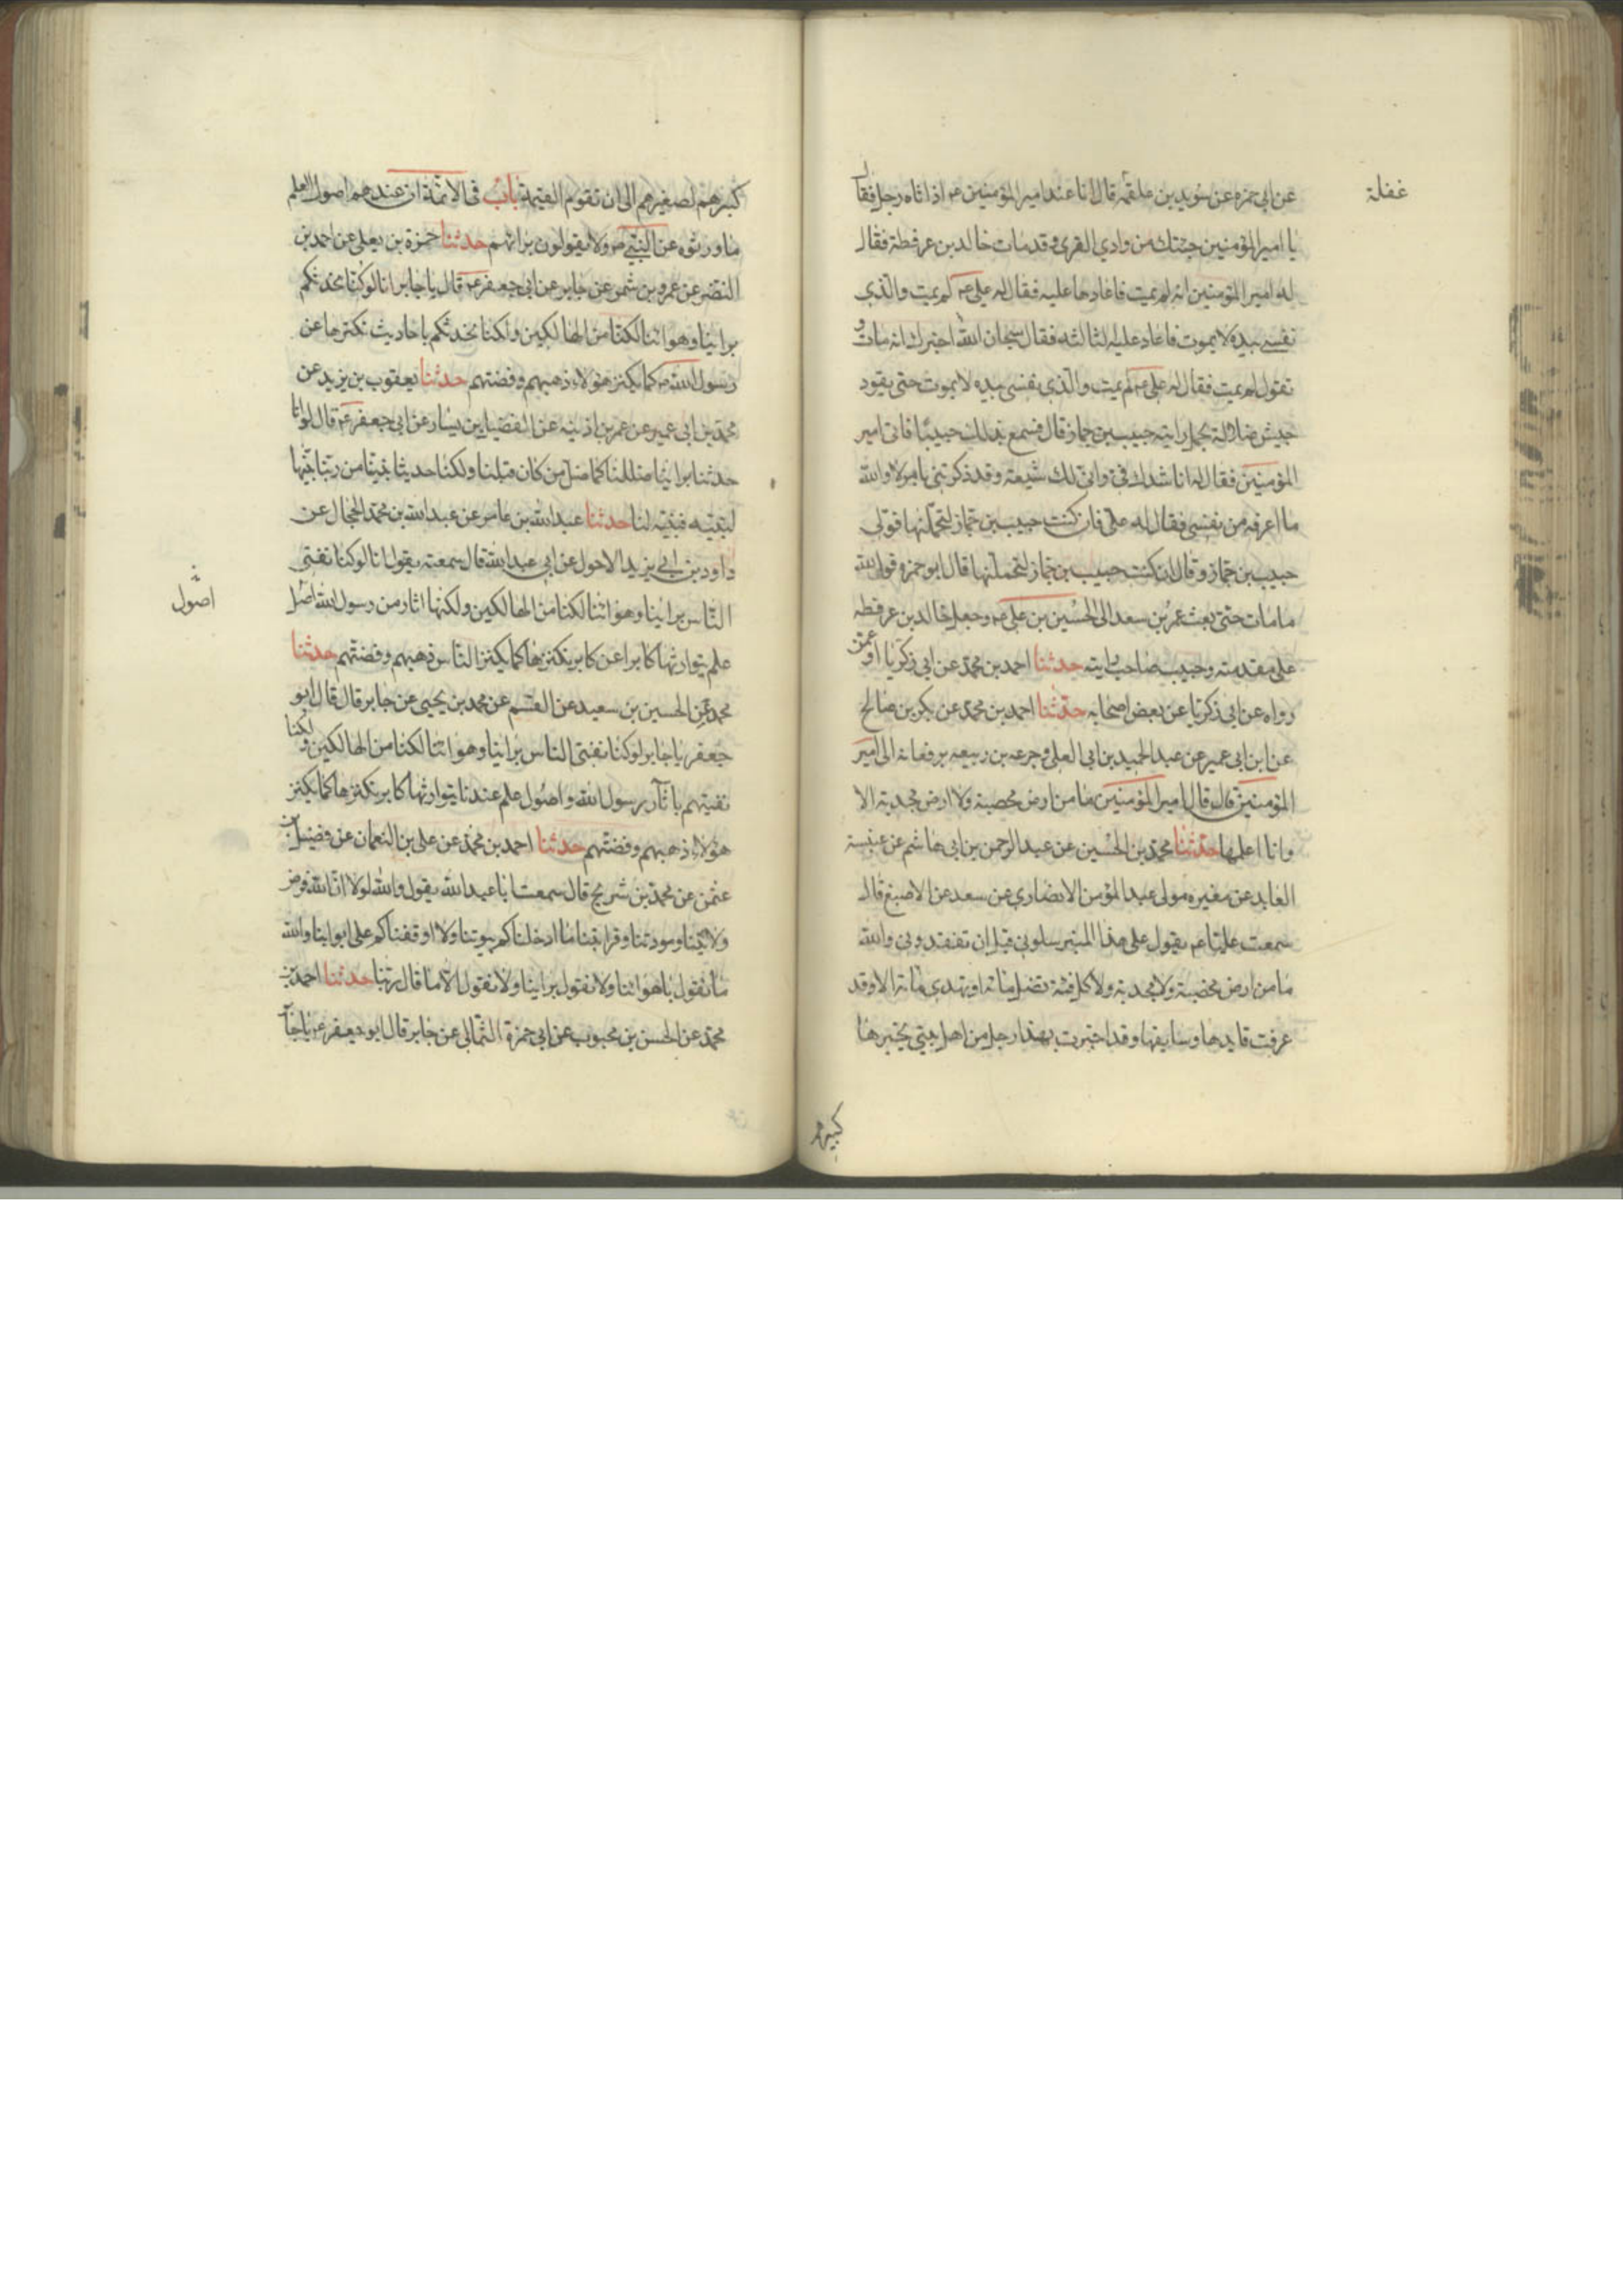 عن ابی حمزه عن سوید بن علقمة قال انا عند امیر المؤمنین عم اذ اتاه رجل فقال
غفلة
یا امیر المؤمنین جئتك من وادی القری وقد مات خالد بن عرفطة فقال
له امیر المؤمنین انه لم یمت فاعادها علیه فقال له علی عم لم یمت والذی
نفسی بیده لا یموت فاعاد علیه الثالثه فقال سبحان الله اخبرك انه مات و
تقول لم یمت فقال له علی عم لم یمت والذی نفسی بیده لا یموت حتی یقود
جیش ضلالة یحمل رایته حبیب بن جماز قال فسمع بذلك حبیب فاتی امیر
المؤمنین فقال له اناشدك فی وانی لك شیعة وقد ذکرتنی بامر لا والله
ما اعرفه من نفسی فقال له علی فان کنت حبیب بن جماز لتحملنها فولی
حبیب بن جماز وقال ان کنت حبیب بن جماز لتحملنها قال ابو حمزه فوالله
ما مات حتی بعث عمر بن سعد الی الحسین بن علی عم وجعل خالد بن عرفطه
علی مقدمته وحبیب صاحب رایته حدثنا احمد بن محمد عن ابی زکریا او عمن
رواه عن ابی زکریا عن بعض اصحابه حدثنا احمد بن محمد عن بکر بن صالح
عن ابن ابی عمیر عن عبد الحمید بن ابی العلی وجرعه بن ربیعه یرفعانه الی امیر
المؤمنین قال قال امیر المؤمنین ما من ارض مخصبة ولا ارض مجدبة الا
وانا اعلمها حدثنا محمد بن الحسین عن عبد الرحمن بن ابی هاشم عن عنبسة
العابد عن مغیره مولی عبد المؤمن الانصاری عن سعد عن الاصبغ قال
سمعت علیا عم یقول علی هذا المنبر سلونی قبل ان تفقدونی والله
ما من ارض مخصبة ولا مجدبة ولا کل فئة تضل مائة او تهدی مائة الا وقد
عرفت قایدها وسایقها وقد اخبرت بهذا رجل من اهل بیتی یخبرها
کبیرهم
کبیرهم لصغیرهم الی ان تقوم القیمة باب فی الائمة ان عندهم اصول العلم
ما ورثوه عن النبی ص ولا یقولون برایهم حدثنا حمزة بن یعلی عن احمد بن
النضر عن عمرو بن شمر عن جابر عن ابی جعفر عم قال یا جابر انا لو کنا نحدثکم
براینا وهوائنا لکنا من الهالکین ولکنا نحدثکم باحادیث نکنزها عن
رسول الله ص کما یکنز هؤلاء ذهبهم وفضتهم حدثنا یعقوب بن یزید عن
محمد بن ابی عمیر عن عمر بن اذینه عن الفضیل بن یسار عن ابی جعفر عم قال لو انا
حدثنا براینا ضللنا کما ضل من کان قبلنا ولکنا حدثنا ببینة من ربنا بینها
لنبیه فبینه لنا حدثنا عبد الله بن عامر عن عبد الله بن محمد الحجال عن
داود بن ابی یزید الاحول عن ابی عبد الله قال سمعته یقول انا لو کنا نفتی
الناس براینا وهوائنا لکنا من الهالکین ولکنها اثار من رسول الله اصل
اصول
علم یتوارثها کابرا عن کابر نکنزها کما یکنز الناس ذهبهم وفضتهم حدثنا
محمد عن الحسین بن سعید عن القسم عن محمد بن یحیی عن جابر قال قال ابو
جعفر یا جابر لو کنا نفتی الناس براینا وهوائنا لکنا من الهالکین ولکنا
نفتیهم باثار رسول الله واصول علم عندنا یتوارثها کابر نکنزها کما یکنز
هؤلاء ذهبهم وفضتهم حدثنا احمد بن محمد عن علی بن النعمان عن فضیل بن
عثمن عن محمد بن شریح قال سمعت ابا عبد الله یقول والله لولا ان الله فرض
ولایتنا ومودتنا وقرابتنا ما ادخلناکم بیوتنا ولا اوقفناکم علی ابوابنا والله
ما نقول باهوائنا ولا نقول براینا ولا نقول الا ما قال ربنا حدثنا احمد بن
محمد عن الحسن بن محبوب عن ابی حمزة الثمالی عن جابر قال ابو جعفر عم یا جا